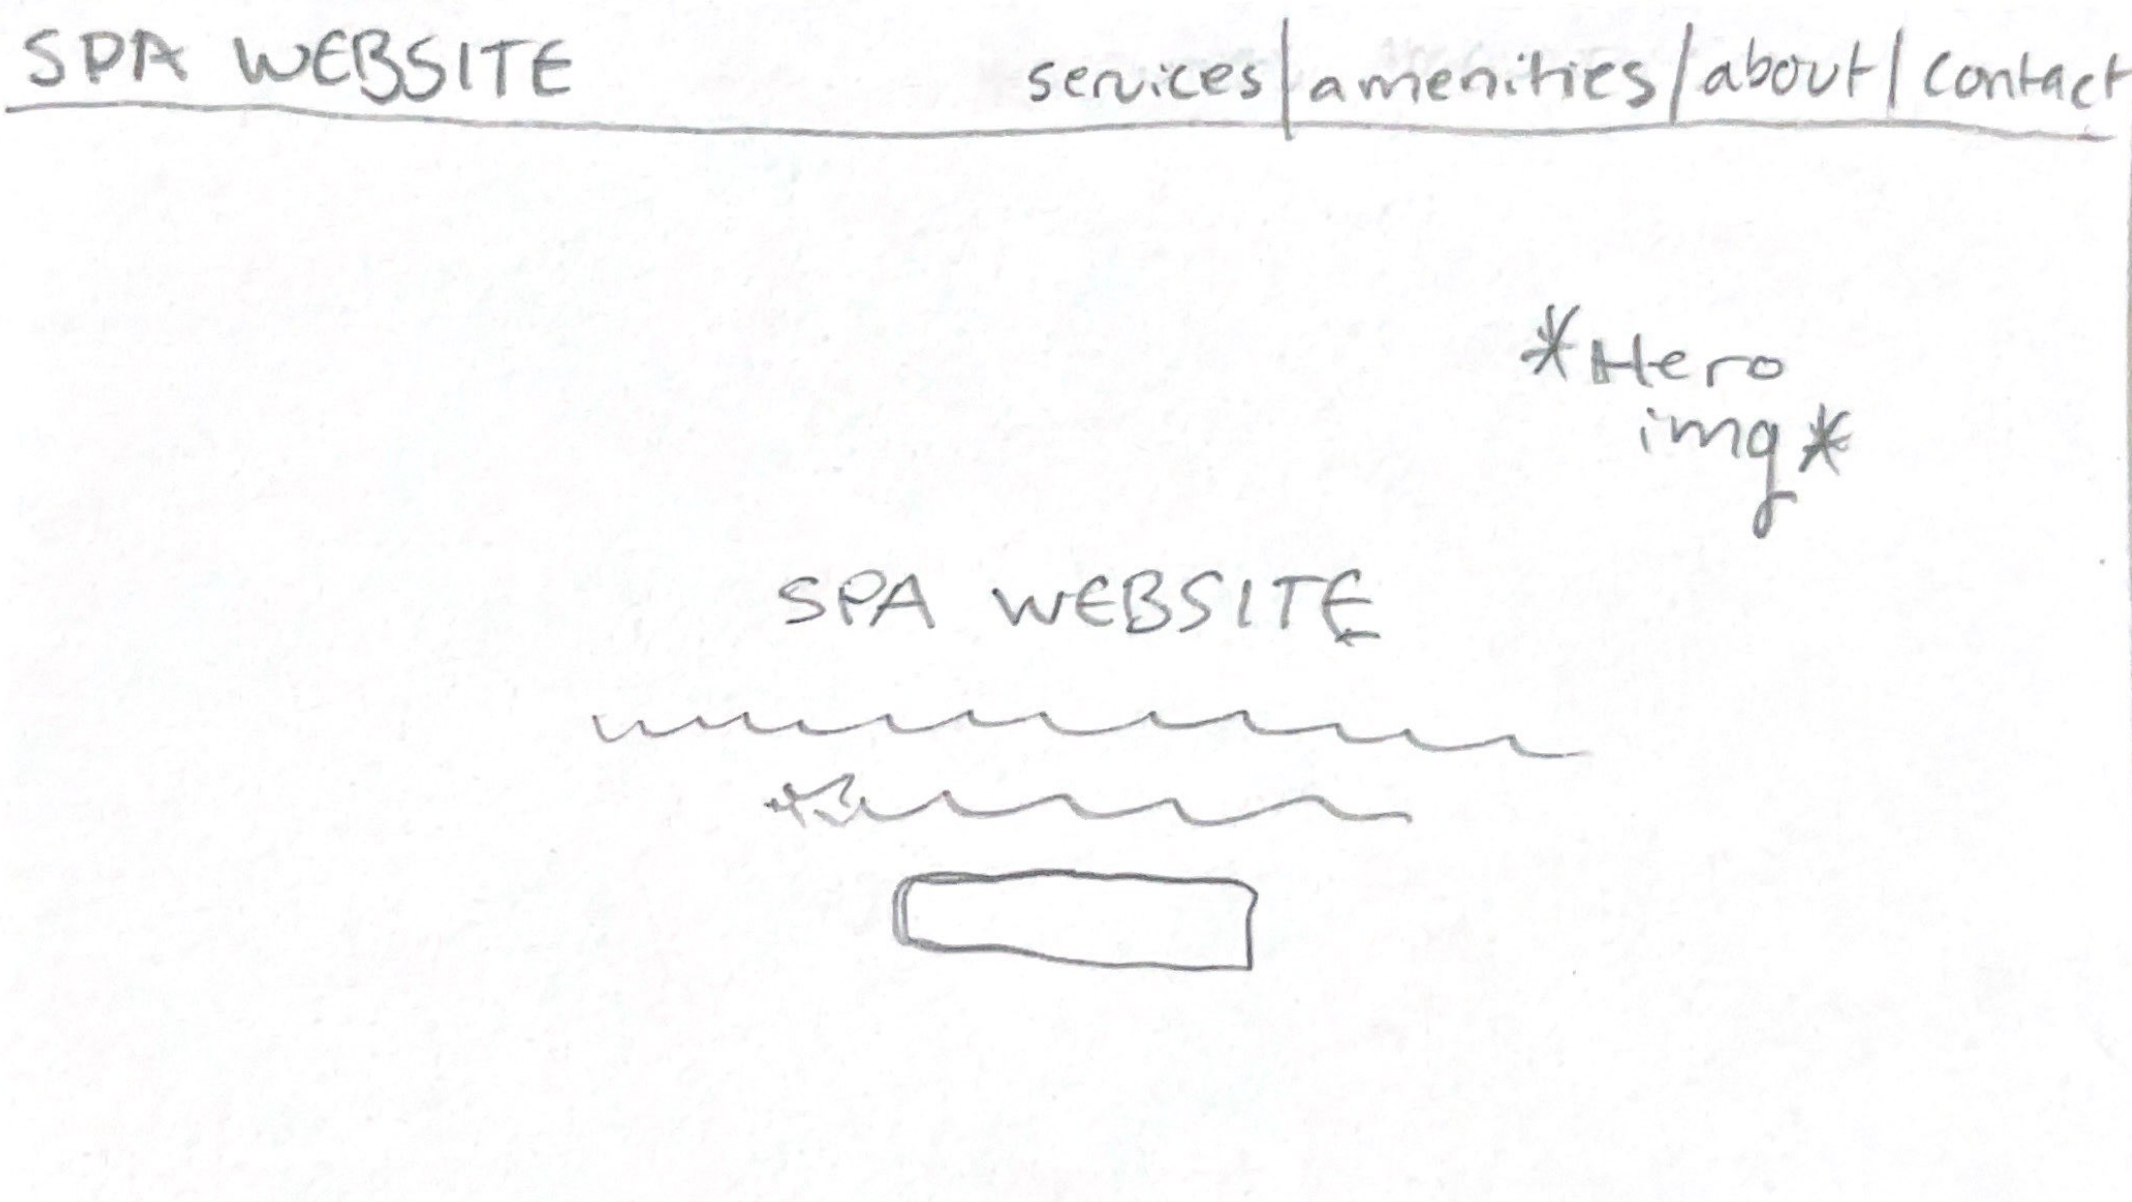 SPA WEBSITE services | amenities | about | contact
*Hero
img*
SPA WEBSITE